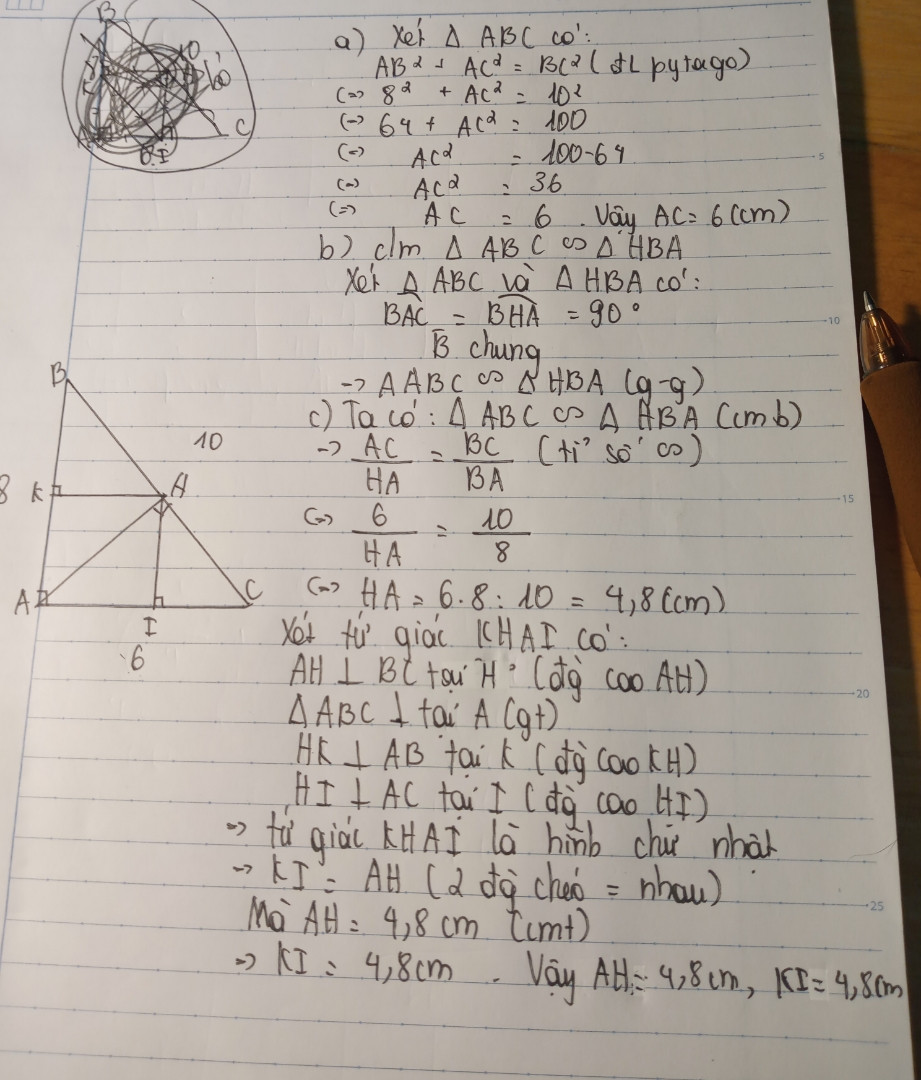 B
10
C
I
a) Xét Δ ABC có:
AB² + AC² = BC² (đL pytago)
(=> 8² + AC² = 10²
(=) 64 + AC² = 100
(=) AC² = 100-64
(=) AC² = 36
(=) AC = 6 . Vậy AC= 6 (cm)
b) c/m Δ ABC ∽ Δ HBA
Xét Δ ABC và Δ HBA có:
BAC = BHA = 90°
B chung
-> Δ ABC ∽ Δ HBA (g-g)
c) Ta có: Δ ABC ∽ Δ HBA (cmb)
-> AC/HA = BC/BA (tỉ số ∽)
(=> 6/HA = 10/8
(=> HA = 6.8 : 10 = 4,8 (cm)
B
10
8 K H
A I C
6
Xét tứ giác KHAI có:
AH ⊥ BC tại H (đg cao AH)
Δ ABC ⊥ tại A (gt)
HK ⊥ AB tại K (đg cao KH)
HI ⊥ AC tại I (đg cao HI)
=> tứ giác KHAI là hình chữ nhật
-> KI = AH (2 đg chéo = nhau)
Mà AH = 4,8 cm (cmt)
=> KI = 4,8cm . Vậy AH = 4,8cm, KI = 4,8cm
5
10
15
20
25